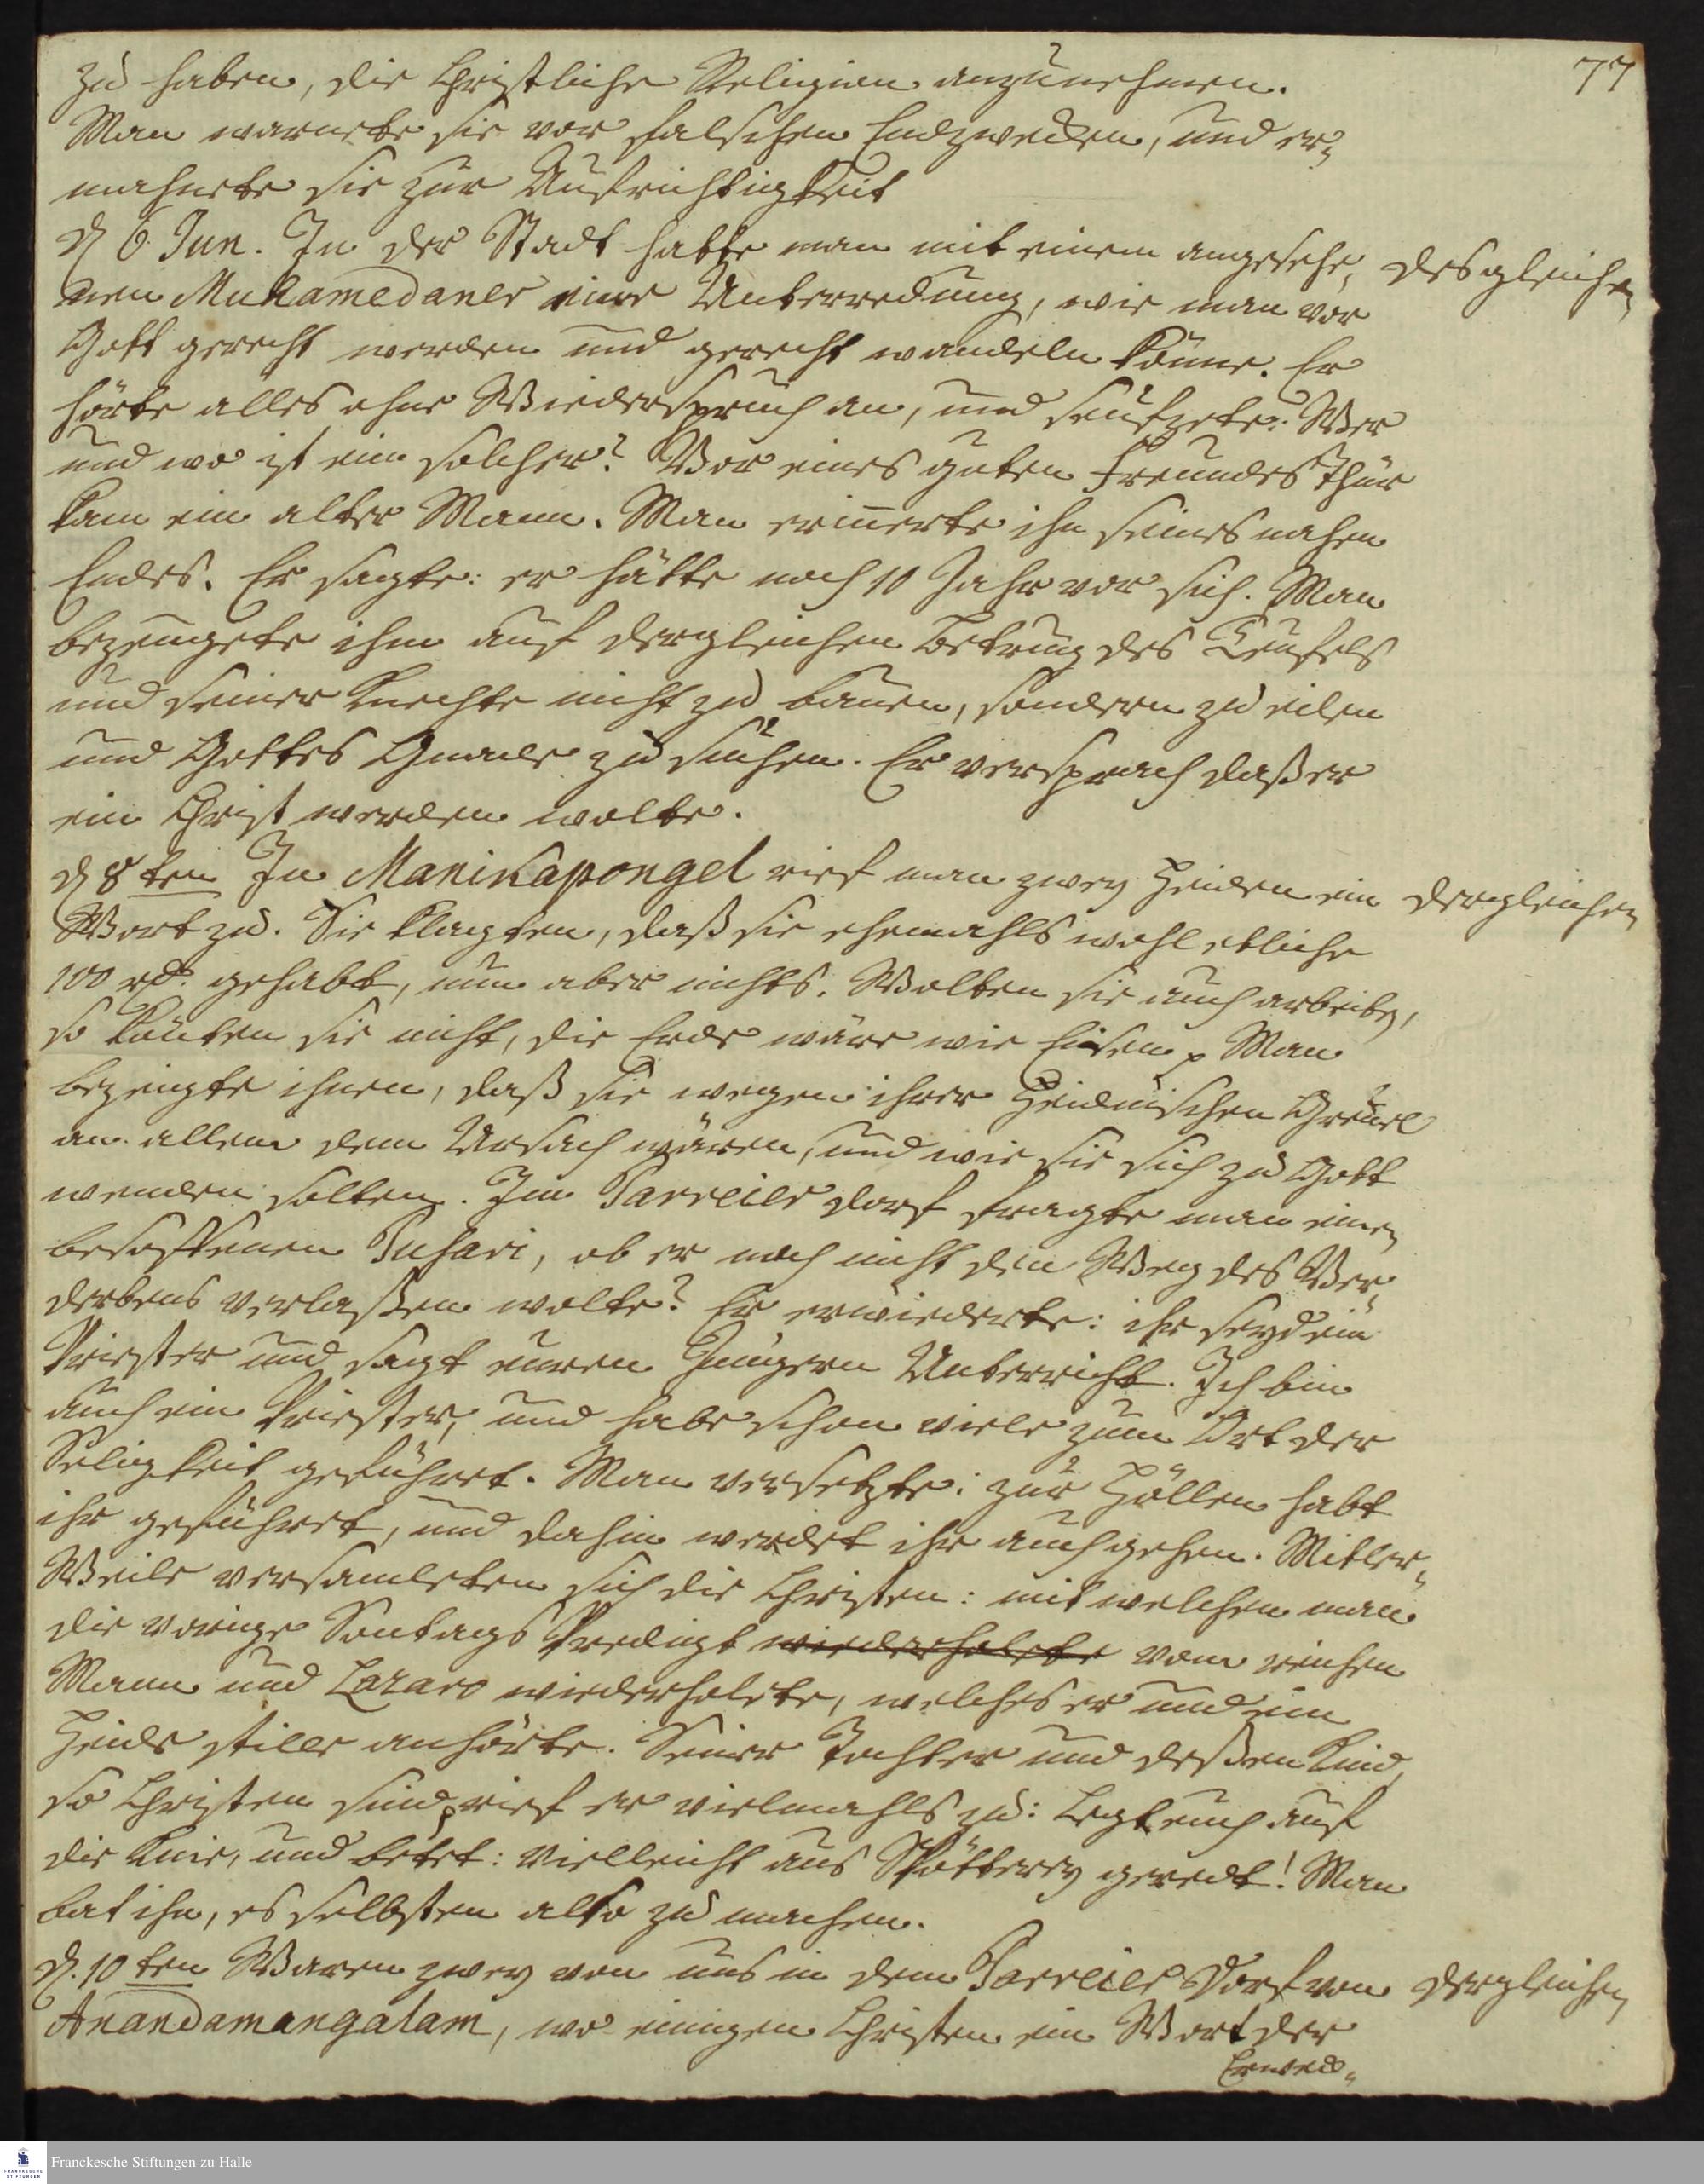 77
zu haben, die Christliche Religion anzunehmen.
Man warnete sie vor falschen Endzwecken, und er-
mahnete sie zur Aufrichtigkeit
d 6 Jun. In der Stadt hatte man mit einem angesehe-
desgleichen
nen Muhamedaner eine Unterredung, wie man vor
Gott gerecht werden und gerecht wandeln könne. Er
hörte alles ohne Wiederspruch an, und seufzete: Wer
und wo ist ein solcher? Vor eines guten Freundes Thür
kam ein alter Mann. Man erinnerte ihn seines nahen
Endes. Er sagte: er hätte noch 10 Jahr vor sich. Man
bezeugete ihm auf dergleichen Betrug des Teufels
und seiner Knechte nicht zu bauen, sondern zu eilen
und Gottes Gnade zu suchen. Er versprach daß er
ein Christ werden wolte.
d 8ten In Manikapongel rief man zwey Heiden ein
dergleichen
Wort zu. Sie klagten, daß sie ehemahls wohl etliche
100 rt. gehabt, nun aber nichts. Wolten sie auch arbeiten,
so könten sie nicht, die Erde wäre wie Eisen p Man
bezeugte ihnen, daß sie wegen ihrer Heidnischen Greuel
an allem dem Ursach wären, und wie sie sich zu Gott
wenden solten. Im Parreier dorf fragte man einen
besoffenen Pusari, ob er noch nicht den Weg des Ver-
derbens verlaßen wolte? Er erwiederte: ihr seyd ein
Priester und sagt euren Jüngern Unterricht. Ich bin
auch ein Priester, und habe schon viele zum Ort der
Seligkeit geführet. Man versetzte: zur Höllen habt
ihr geführet, und dahin werdet ihr auch gehen. Mitler-
Weile versamleten sich die Christen: mit welchen man
die vorige Sontags Predigt wiederholete vom reichen
Mann und Lazaro wiederholete, welches er und ein
Heide stille anhörte. Seiner Tochter und deßen Kind,
so Christen sind, rief er vielmahls zu: Legt euch auf
die Knie, und betet: vielleicht aus Spötterey geredt! Man
bat ihn, es selbsten also zu machen.
d. 10ten Waren zwey von uns in dem Parreier Dorf von
dergleichen
Anandamangalam, wo einigen Christen ein Wort der
Erweck-
Franckesche Stiftungen zu Halle